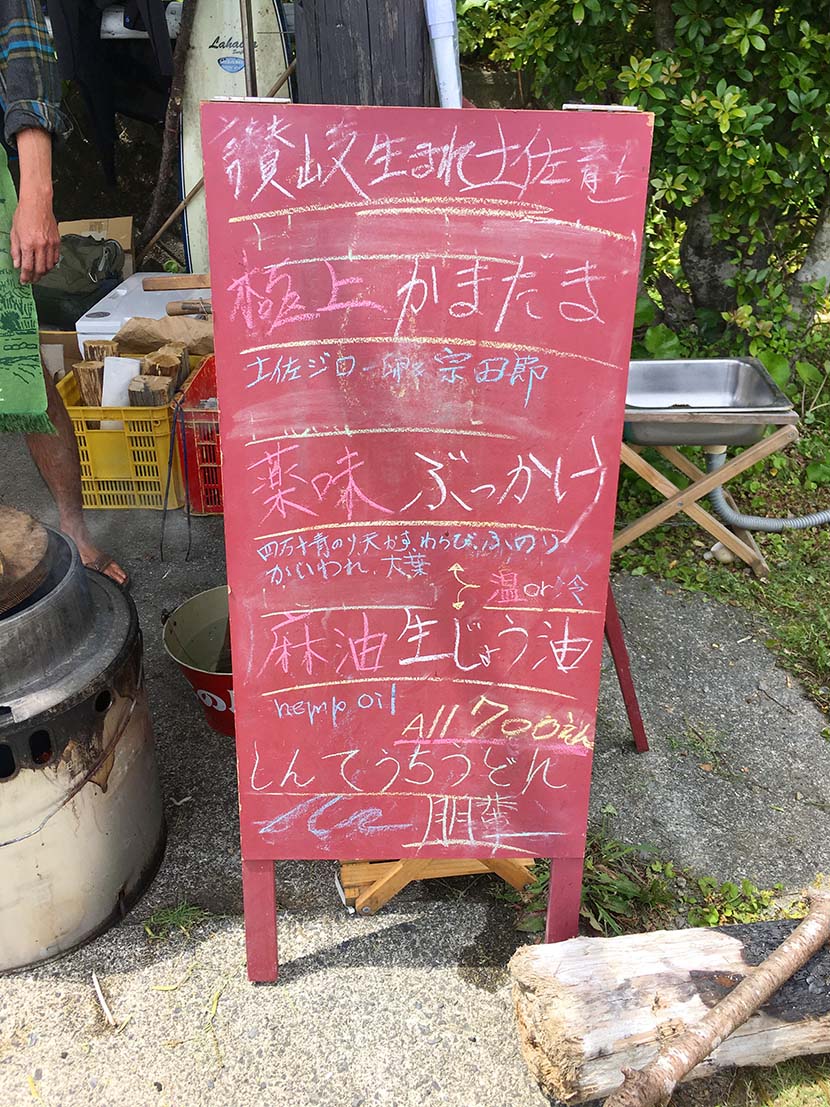 Lahaina
讃岐生まれ土佐育ち
極上 かまだま
土佐ジロー卵と宗田節
薬味 ぶっかけ
四万十青のり 天かす わらび ふのり
かいわれ、大葉
温or冷
麻油 生じょう油
hemp oil
All 700えん
しんてうちうどん
朋輩